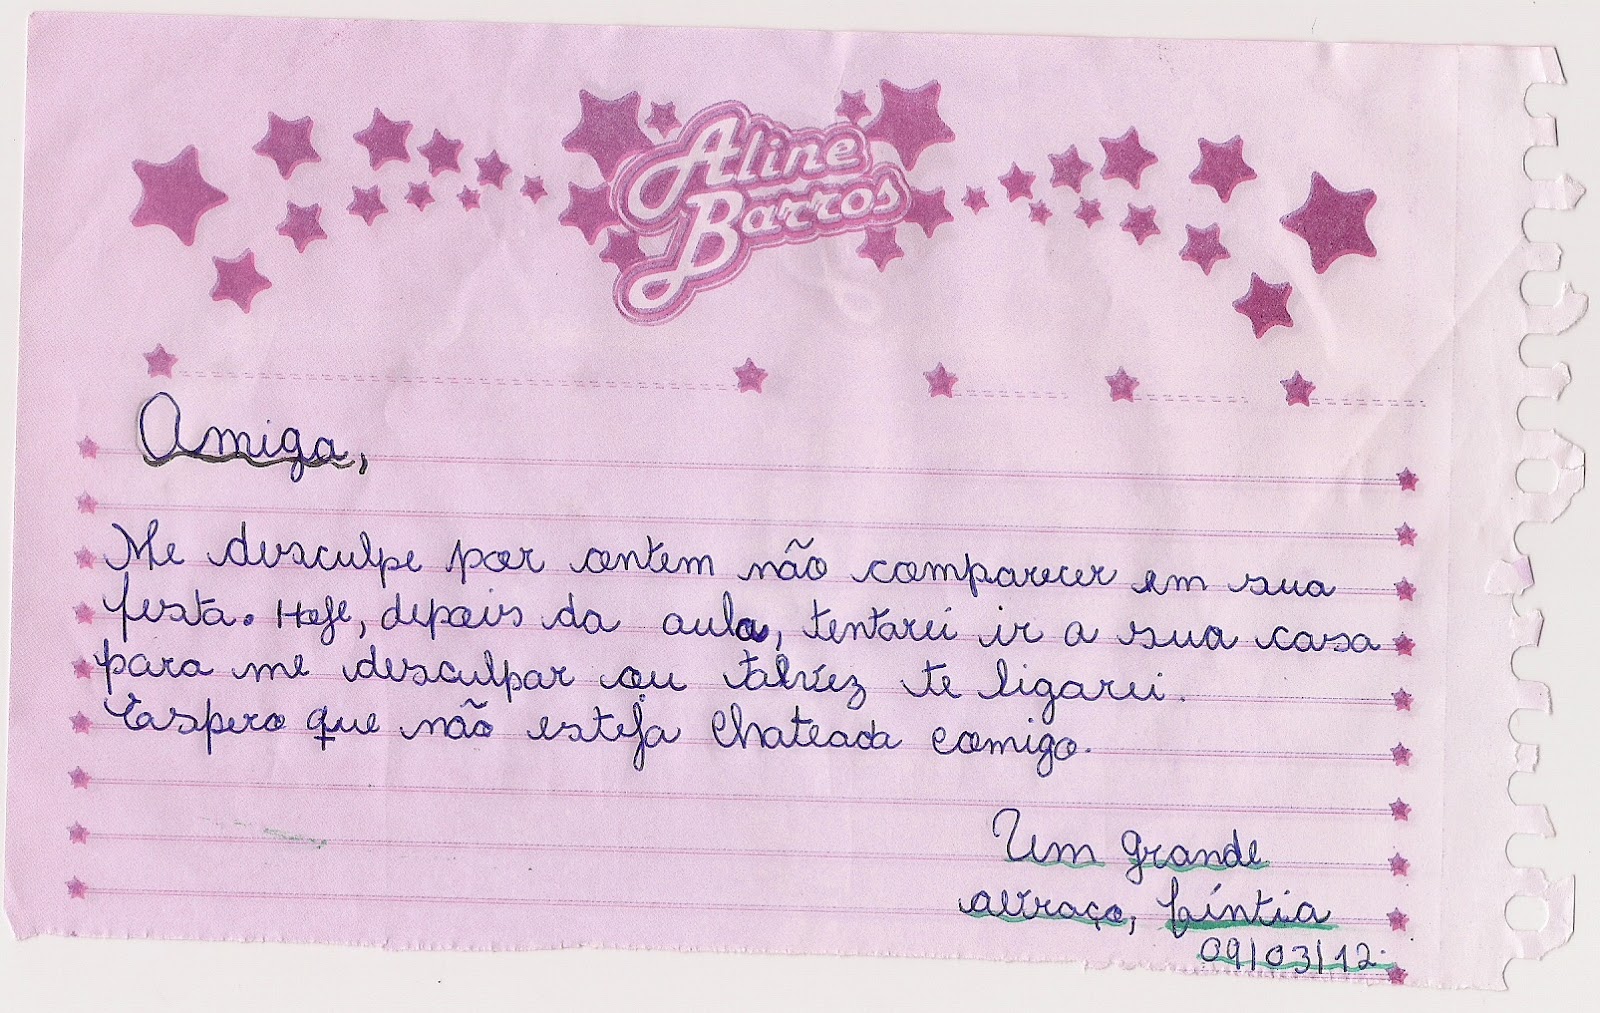 Aline
Barros
Amiga,
Me desculpe por ontem não comparecer em sua
festa. Hoje, depois da aula, tentarei ir a sua casa
para me desculpar ou talvez te ligarei.
Espero que não esteja chateada comigo.
Um grande
abraço, Cíntia
09/03/12.